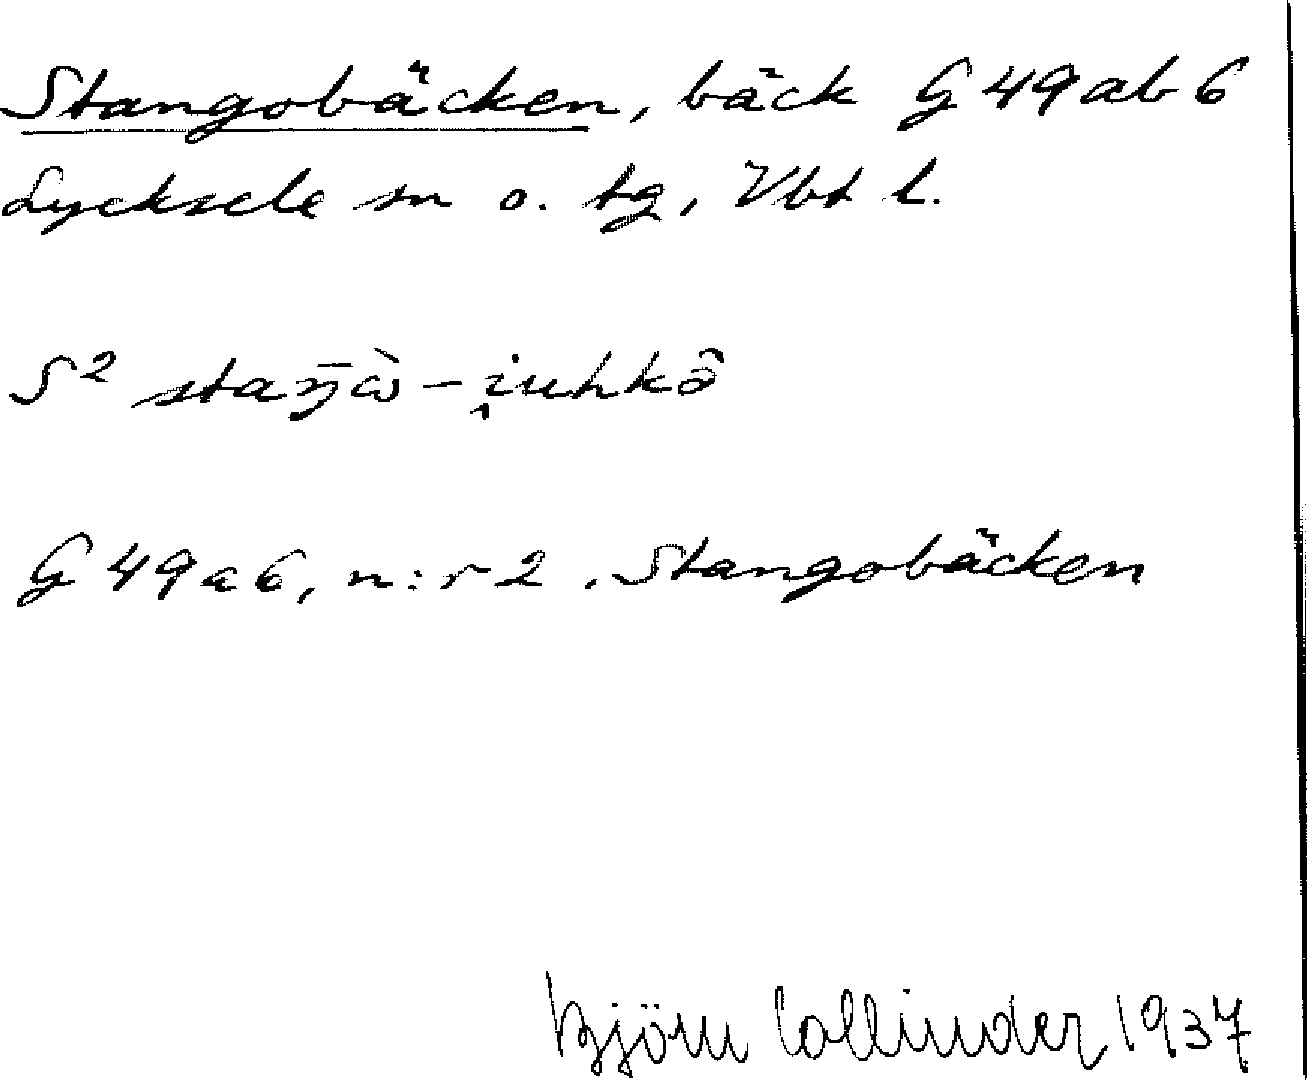 Stangobäcken, bäck G 49 ab 6
Lycksele sn o. tg, Vbt l.
S² staŋ̄ɷ̀ – i̭uhkɔ̂
G 49 a 6, n:r 2. Stangobäcken
Björn Collinder 1937